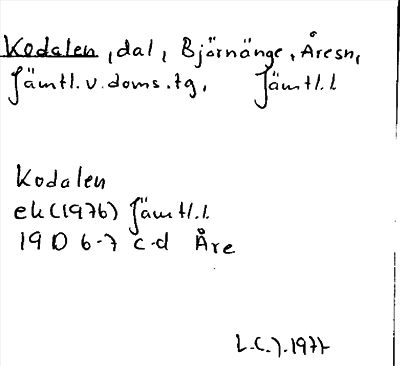 Kodalen, dal, Björnänge, Åresn,
Jämtl.v.doms.tg, Jämtl.l
Kodalen
ek(1976) Jämtl.l.
19 D 6-7 c-d Åre
L.C.J.1977